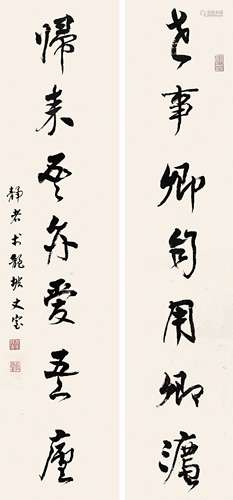 世事卿自用卿法
歸來吾亦愛吾廬
靜者於龍坡丈室